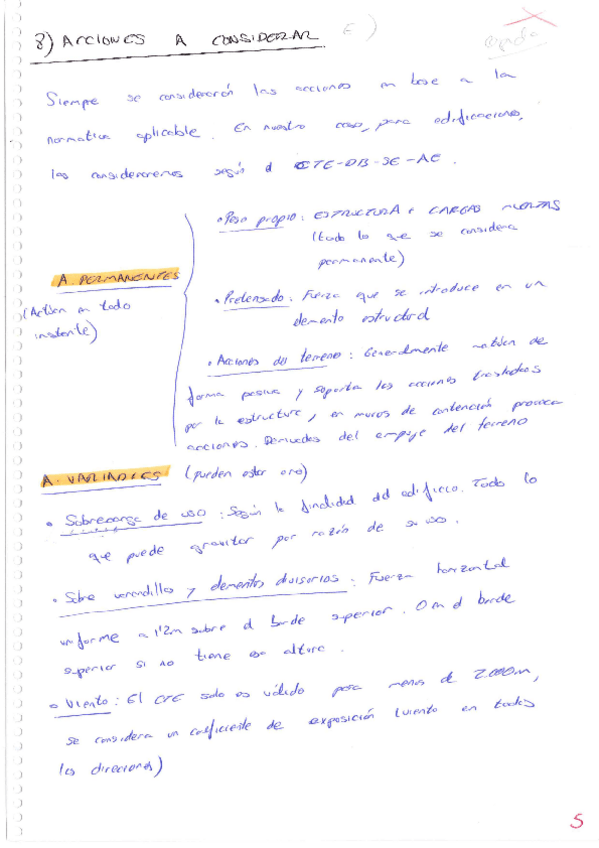 8) ACCIONES A CONSIDERAR
Siempre se considerarán las acciones en base a la
normativa aplicable. En nuestro caso, para edificaciones,
las consideraremos según el CTE-DB-SE-AE.
• Peso propio: ESTRUCTURA + CARGAS MUERTAS
(todo lo que se considera
permanente)
A. PERMANENTES
(Actúan en todo
instante)
• Pretensado: Fuerza que se introduce en un
elemento estructural
• Acciones del terreno: Generalmente de
forma pasiva y soporta las acciones trasladadas
por la estructura, en muros de contención provoca
acciones. Derivadas del empuje del terreno
A. VARIABLES (pueden estar o no)
• Sobrecarga de uso: Según la finalidad del edificio. Todo lo
que puede gravitar por razón de su uso.
• Sobre varandillas y elementos divisorios: Fuerza horizontal
uniforme a 1'2m sobre el borde superior. O en el borde
superior si no tiene esa altura.
• Viento: El CTE solo es válido para menos de 2.000m,
se considera un coeficiente de exposición (viento en todas
las direcciones)
5